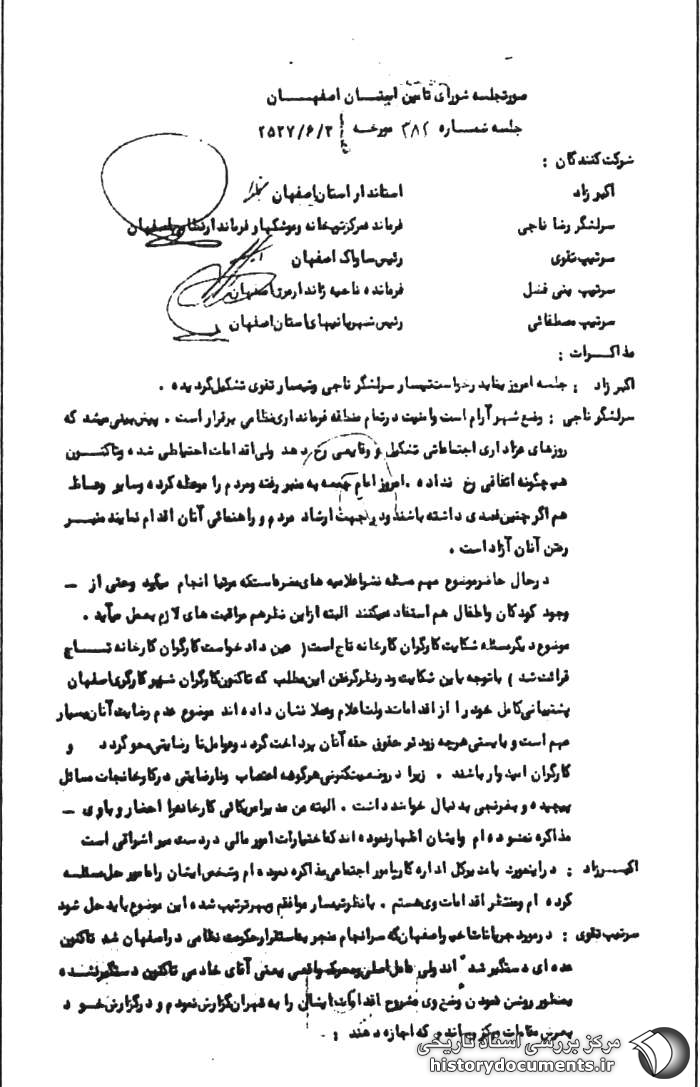 صورتجلسه شورای تامین استان اصفهان
جلسه شماره ۳۸۲ مورخه ۲۵۳۷/۶/۲
شرکت کنندگان :
اکبر زاد استاندار استان اصفهان
سرلشگر رضا ناجی فرمانده مرکز توپخانه وموشکها و فرماندار نظامی اصفهان
سرتیپ تقوی رئیس ساواک اصفهان
سرتیپ بنی فضل فرمانده ناحیه ژاندارمری اصفهان
سرتیپ مصطفائی رئیس شهربانیهای استان اصفهان
مذاکرات :
اکبر زاد : جلسه امروز بنابدرخواست تیمسار سرلشگر ناجی وتیمسار تقوی تشکیل گردیده .
سرلشگر ناجی : وضع شهر آرام است وامنیت درتمام منطقه فرمانداری نظامی برقرار است . پیش بینی میشد که
روزهای عزاداری اجتماعاتی تشکیل و وقایعی رخ دهد ولی اقدامات احتیاطی شده وتاکنون
هیچگونه اتفاقی رخ نداده . امروز امام جمعه به منبر رفته ومردم را موعظه کرده وسایر وعاظ
هم اگر چنین قصدی داشته باشند ودرجهت ارشاد مردم و راهنمائی آنان اقدام نمایند منبر
رفتن آنان آزاد است .
درحال حاضر موضوع مهم مسئله نشر اعلامیه های مضره است که مرتبا انجام میگیرد وحتی از -
وجود کودکان واطفال هم استفاده میکنند البته از این نظر هم مراقبت های لازم بعمل میآید .
موضوع دیگر مسئله شکایت کارگران کارخانه تاج است ( عین دادخواست کارگران کارخانه تاج
قرائت شد ) باتوجه باین شکایت ودرنظر گرفتن این مطلب که تاکنون کارگران شهر کارگری اصفهان
پشتیبانی کامل خود را از اقدامات دولت اعلام وعملا نشان داده اند موضوع عدم رضایت آنان بسیار
مهم است و بایستی هرچه زودتر حقوق حقه آنان پرداخت گردد وعوامل نا رضایتی محو گردد و
کارگران امیدوار باشند . زیرا در وضعیت کنونی هرگونه اعتصاب ونارضایتی درکارخانجات مسائل
پیچیده و بغرنجی بدنبال خواهد داشت . البته من مدیر اسبکائی کارخانه را احضار و باوی -
مذاکره نموده ام وایشان اظهار نموده اند که اختیارات امور مالی دردست میر اشراقی است
اکبر زاد : دراینمورد با مدیرکل اداره کار وامور اجتماعی مذاکره نموده ام وشخص ایشان را مامور حل مسئله
کرده ام ومنتظر اقدامات وی هستم . بانظر تیمسار موافقم وبهر ترتیب شده این موضوع باید حل شود
سرتیپ تقوی : درمورد جریانات اخیر اصفهان که سرانجام منجر به استقرار حکومت نظامی در اصفهان شد تاکنون
عده ای دستگیر شده اند ولی عامل اصلی ومحرک واقعی یعنی آقای خادمی تاکنون دستگیر نشده
بمنظور روشن نمودن وضع وی مشروح اقدامات ایشان را به تهران گزارش نمودم و درگزارش خود
بعرض مقامات مرکز رسانده ام که اجازه دهند :
مرکز بررسی اسناد تاریخی
historydocuments.ir